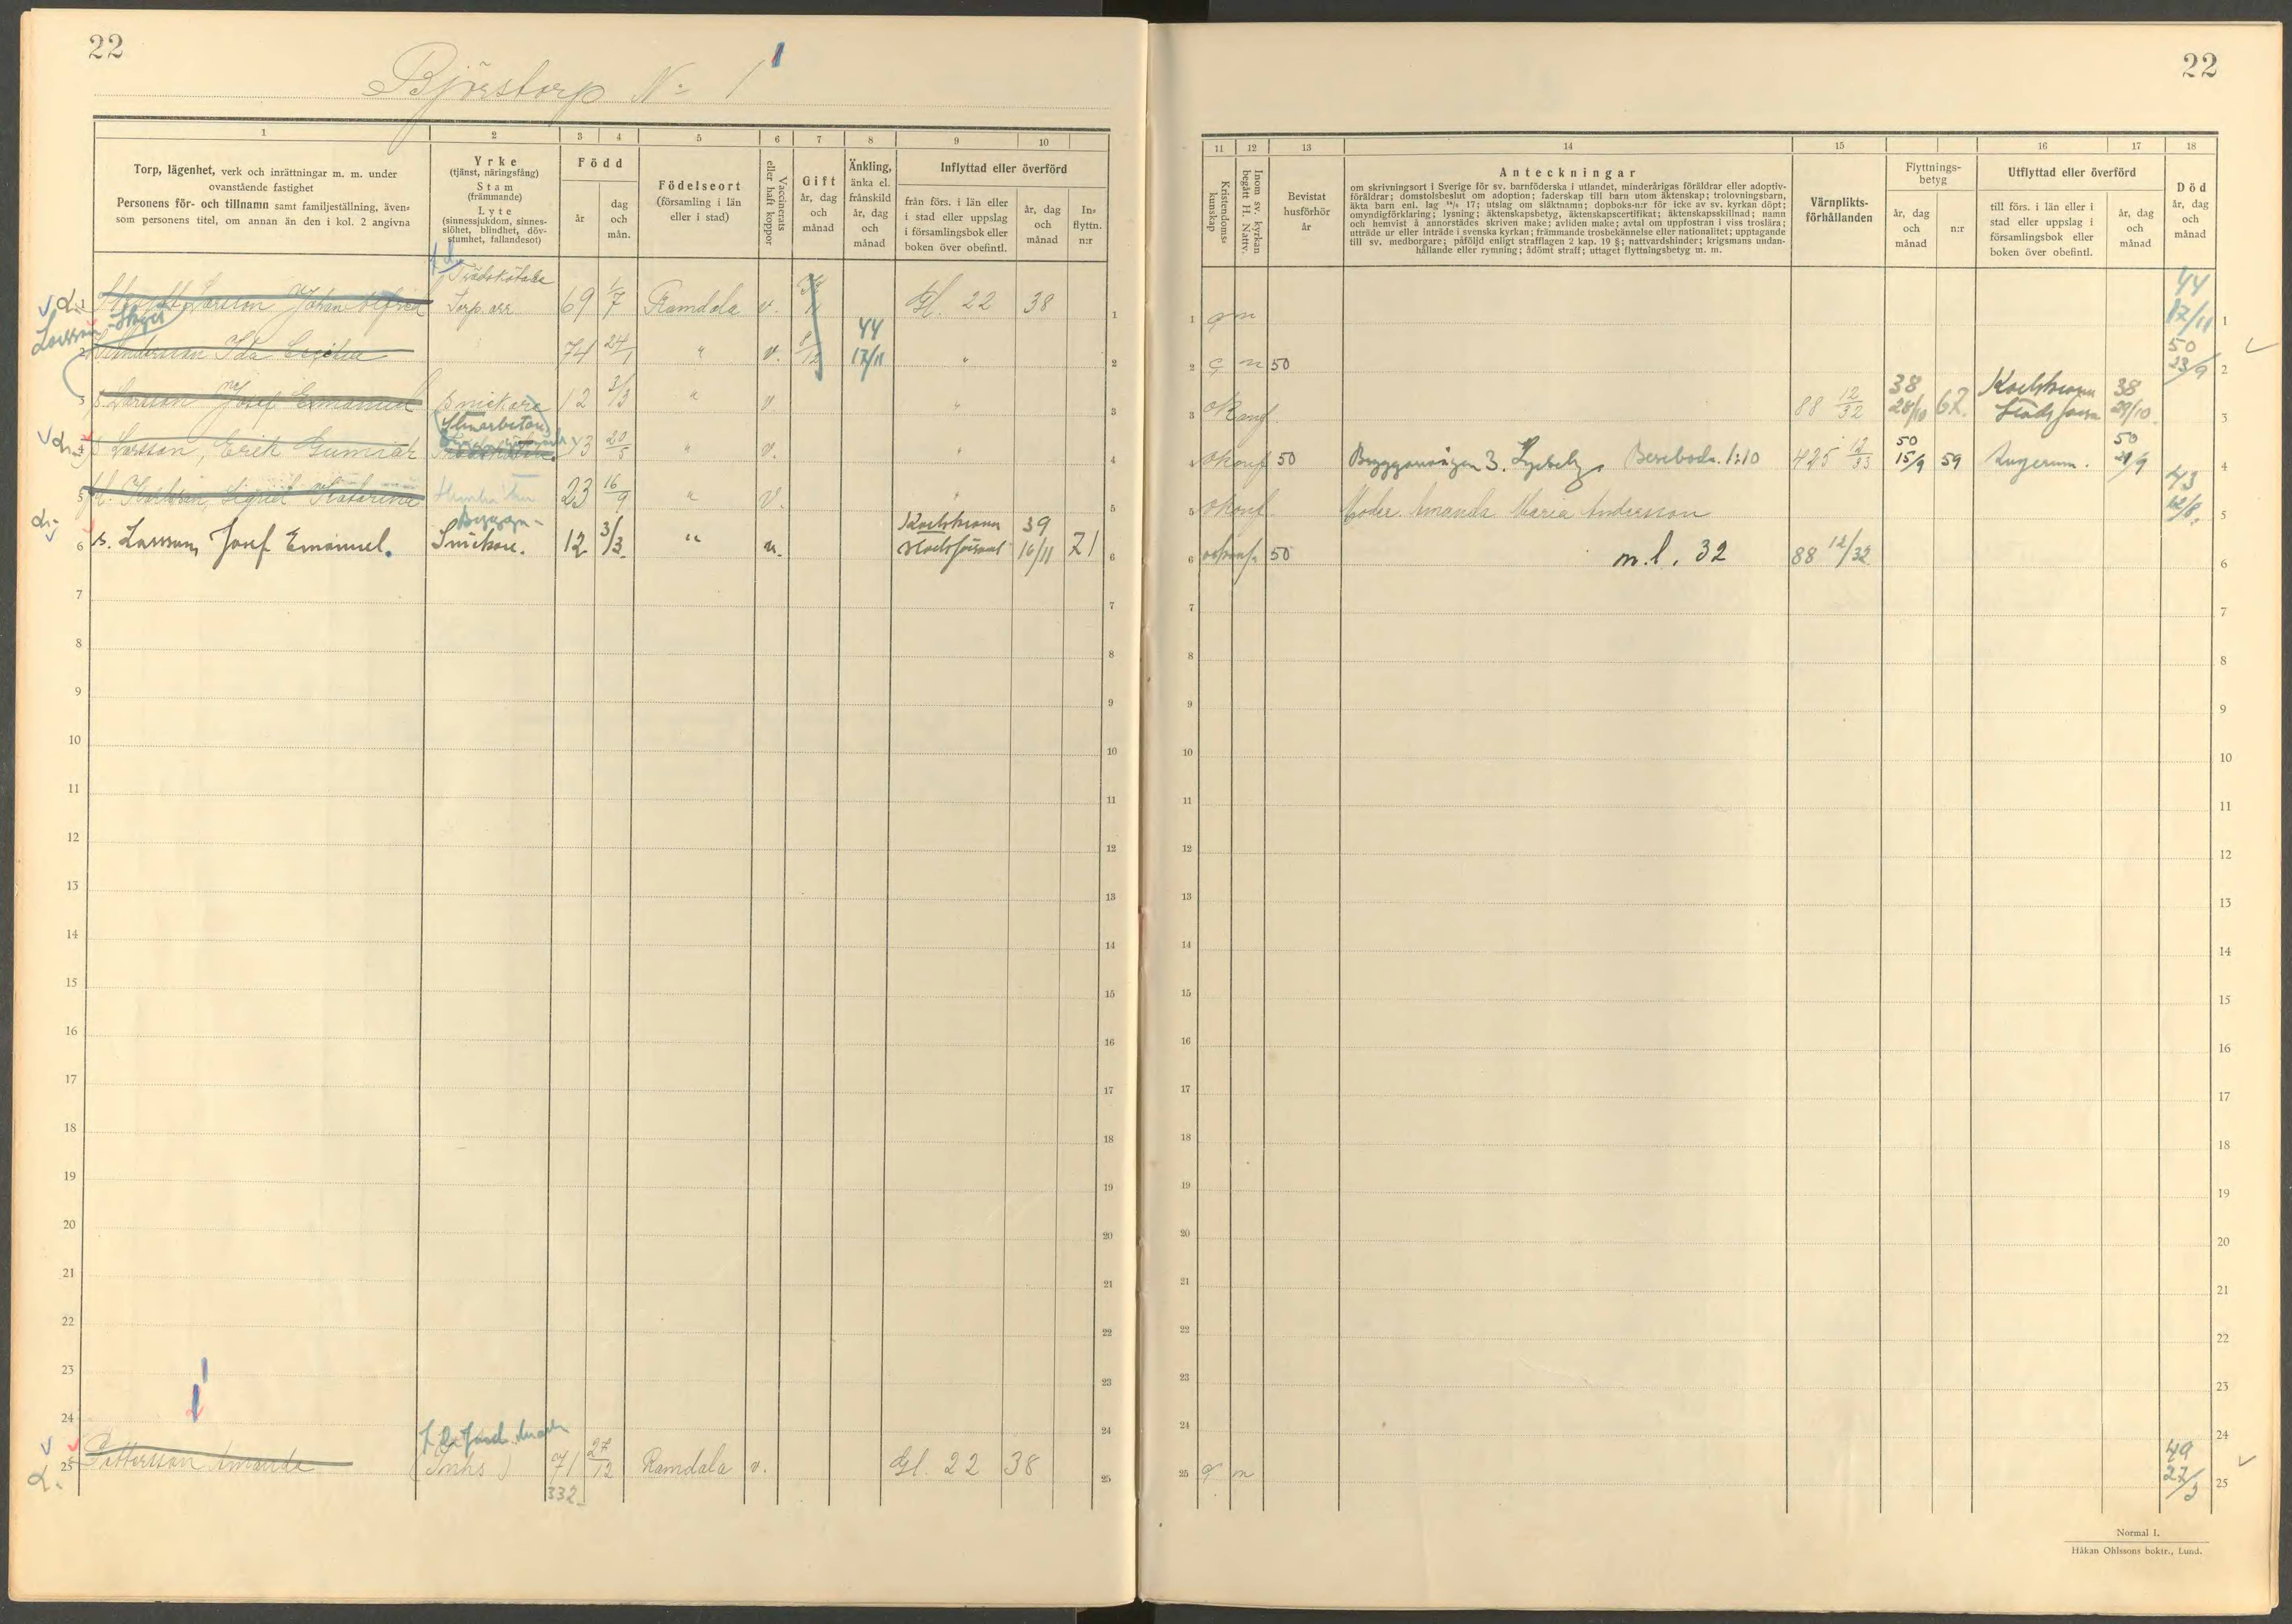 22
Björstorp No 1
1 2 3 4 5 6 7 8 9 10
Torp, lägenhet, verk och inrättningar m. m. under
ovanstående fastighet
Personens för- och tillnamn samt familjeställning, även-
som personens titel, om annan än den i kol. 2 angivna
Yrke
(tjänst, näringsfång)
Stam
(främmande)
Lyte
(sinnessjukdom, sinnes-
slöhet, blindhet, döv-
stumhet, fallandesot)
Född
år
dag
och
mån.
Födelseort
(församling i län
eller i stad)
Vaccinerats
eller haft koppor
Gift
år, dag
och
månad
Änkling,
änka el.
frånskild
år, dag
och
månad
Inflyttad eller överförd
från förs. i län eller
i stad eller uppslag
i församlingsbok eller
boken över obefintl.
år, dag
och
månad
In-
flyttn.
n:r
Trädskötare
1 Larsson Johan Alfred Torp.arr 69 1/7 Ramdala v. Gl. 22 38 1
Larsson
44
2 Andersson Ida Cecilia 74 24/1 " v. 8/12 17/11 " 2
3 s. Larsson Josef Emanuel Snickare 12 3/3 " v. " 3
4 Larsson, Erik Gunnar 13 20/5 " v. " 4
5 Karlsson, Sigrid Katarina 23 16/9 " v. " 5
Karlskrona 39
6 s. Larsson, Josef Emanuel. Snickare. 12 3/3 " v. Stadsförsaml 16/11 71 6
7 7
8 8
9 9
10 10
11 11
12 12
13 13
14 14
15 15
16 16
17 17
18 18
19 19
20 20
21 21
22 22
23 23
24 24
25 Pettersson Amanda (Inhs) 71 27/12 Ramdala v. Gl. 22 38 25
332
22
11 12 13 14 15 16 17 18
Kristendoms-
kunskap
Inom sv. kyrkan
begått H. Nattv.
Bevistat
husförhör
år
Anteckningar
om skrivningsort i Sverige för sv. barnföderska i utlandet, minderårigas föräldrar eller adoptiv-
föräldrar; domstolsbeslut om adoption; faderskap till barn utom äktenskap; trolovningsbarn,
äkta barn enl. lag 14/6 17; utslag om släktnamn; dopboks-n:r för icke av sv. kyrkan döpt;
omyndigförklaring; lysning; äktenskapsbetyg, äktenskapscertifikat; äktenskapsskillnad; namn
och hemvist å annorstädes skriven make; avliden make; avtal om uppfostran i viss troslära;
utträde ur eller inträde i svenska kyrkan; främmande trosbekännelse eller nationalitet; upptagande
till sv. medborgare; påföljd enligt strafflagen 2 kap. 19 §; nattvardshinder; krigsmans undan-
hållande eller rymning; ådömt straff; uttaget flyttningsbetyg m. m.
Värnplikts-
förhållanden
Flyttnings-
betyg
år, dag
och
månad
n:r
Utflyttad eller överförd
till förs. i län eller i
stad eller uppslag i
församlingsbok eller
boken över obefintl.
år, dag
och
månad
Död
år, dag
och
månad
44
1 g n 17/11 1
50
2 g n 50 23/9 2
38 Karlskrona 38
3 88 12/32 28/10 67. Stadsförs 29/10 3
50 50
4 okonf 50 Bryggarevägen 3. Lyckeby. 1:10 425 12/33 15/9 59 Augerum. 21/9 4
43
5 okonf. Moder Amanda Maria Andersson 12/8. 5
6 50 m.l. 32 88 12/32 6
7 7
8 8
9 9
10 10
11 11
12 12
13 13
14 14
15 15
16 16
17 17
18 18
19 19
20 20
21 21
22 22
23 23
24 24
49
25 g n 27/3 25
Normal 1.
Håkan Ohlssons boktr., Lund.